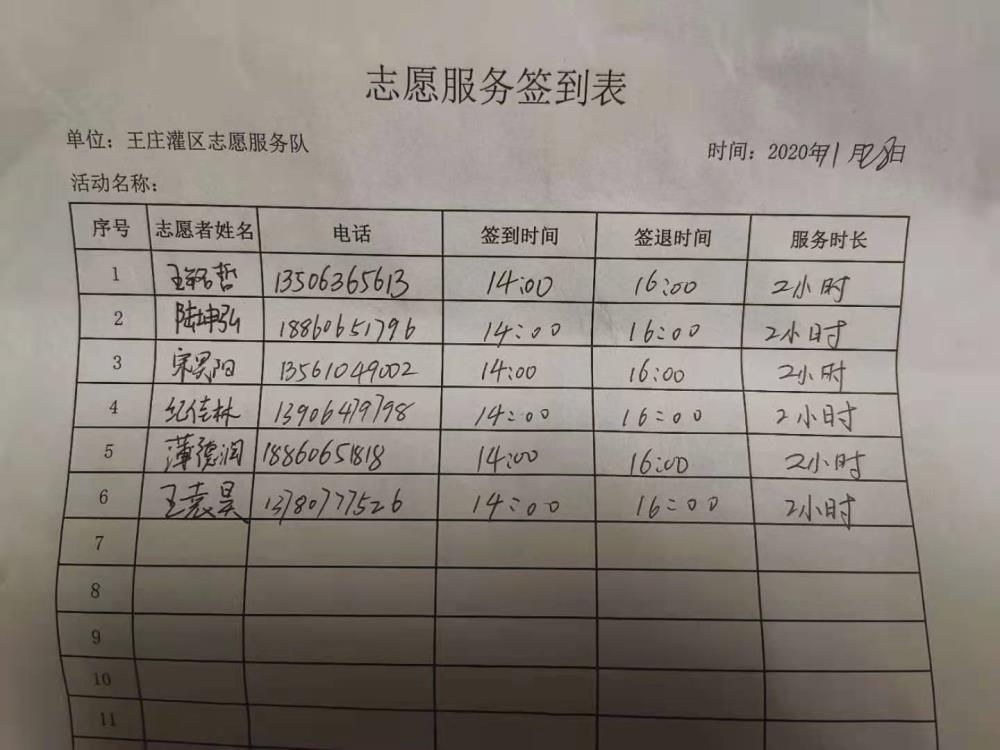 志愿服务签到表
单位：王庄灌区志愿服务队 时间：2020年1月28日
活动名称：
序号 志愿者姓名 电话 签到时间 签退时间 服务时长
1 王铭哲 13506365613 14:00 16:00 2小时
2 陆坤弘 18860651796 14:00 16:00 2小时
3 宋昊阳 13561049002 14:00 16:00 2小时
4 纪佳林 13906479798 14:00 16:00 2小时
5 薄德润 18860651818 14:00 16:00 2小时
6 王袁昊 13780777526 14:00 16:00 2小时
7
8
9
10
11